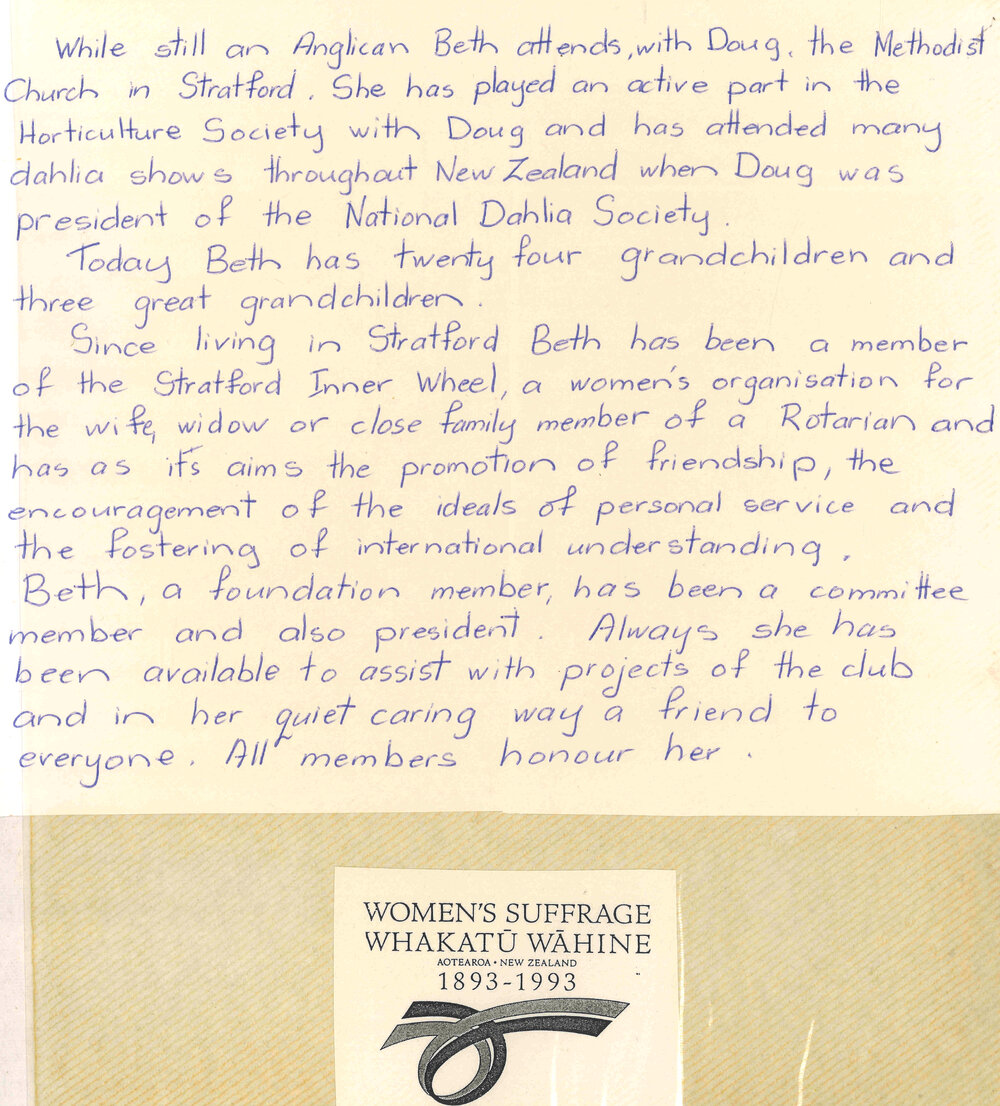 While still an Anglican Beth attends, with Doug, the Methodist
Church in Stratford. She has played an active part in the
Horticulture Society with Doug and has attended many
dahlia shows throughout New Zealand when Doug was
president of the National Dahlia Society.
Today Beth has twenty four grandchildren and
three great grandchildren.
Since living in Stratford Beth has been a member
of the Stratford Inner Wheel, a women's organisation for
the wife, widow or close family member of a Rotarian and
has as it's aims the promotion of friendship, the
encouragement of the ideals of personal service and
the fostering of international understanding.
Beth, a foundation member, has been a committee
member and also president. Always she has
been available to assist with projects of the club
and in her quiet caring way a friend to
everyone. All members honour her.
WOMEN'S SUFFRAGE
WHAKATŪ WĀHINE
AOTEAROA • NEW ZEALAND
1893-1993